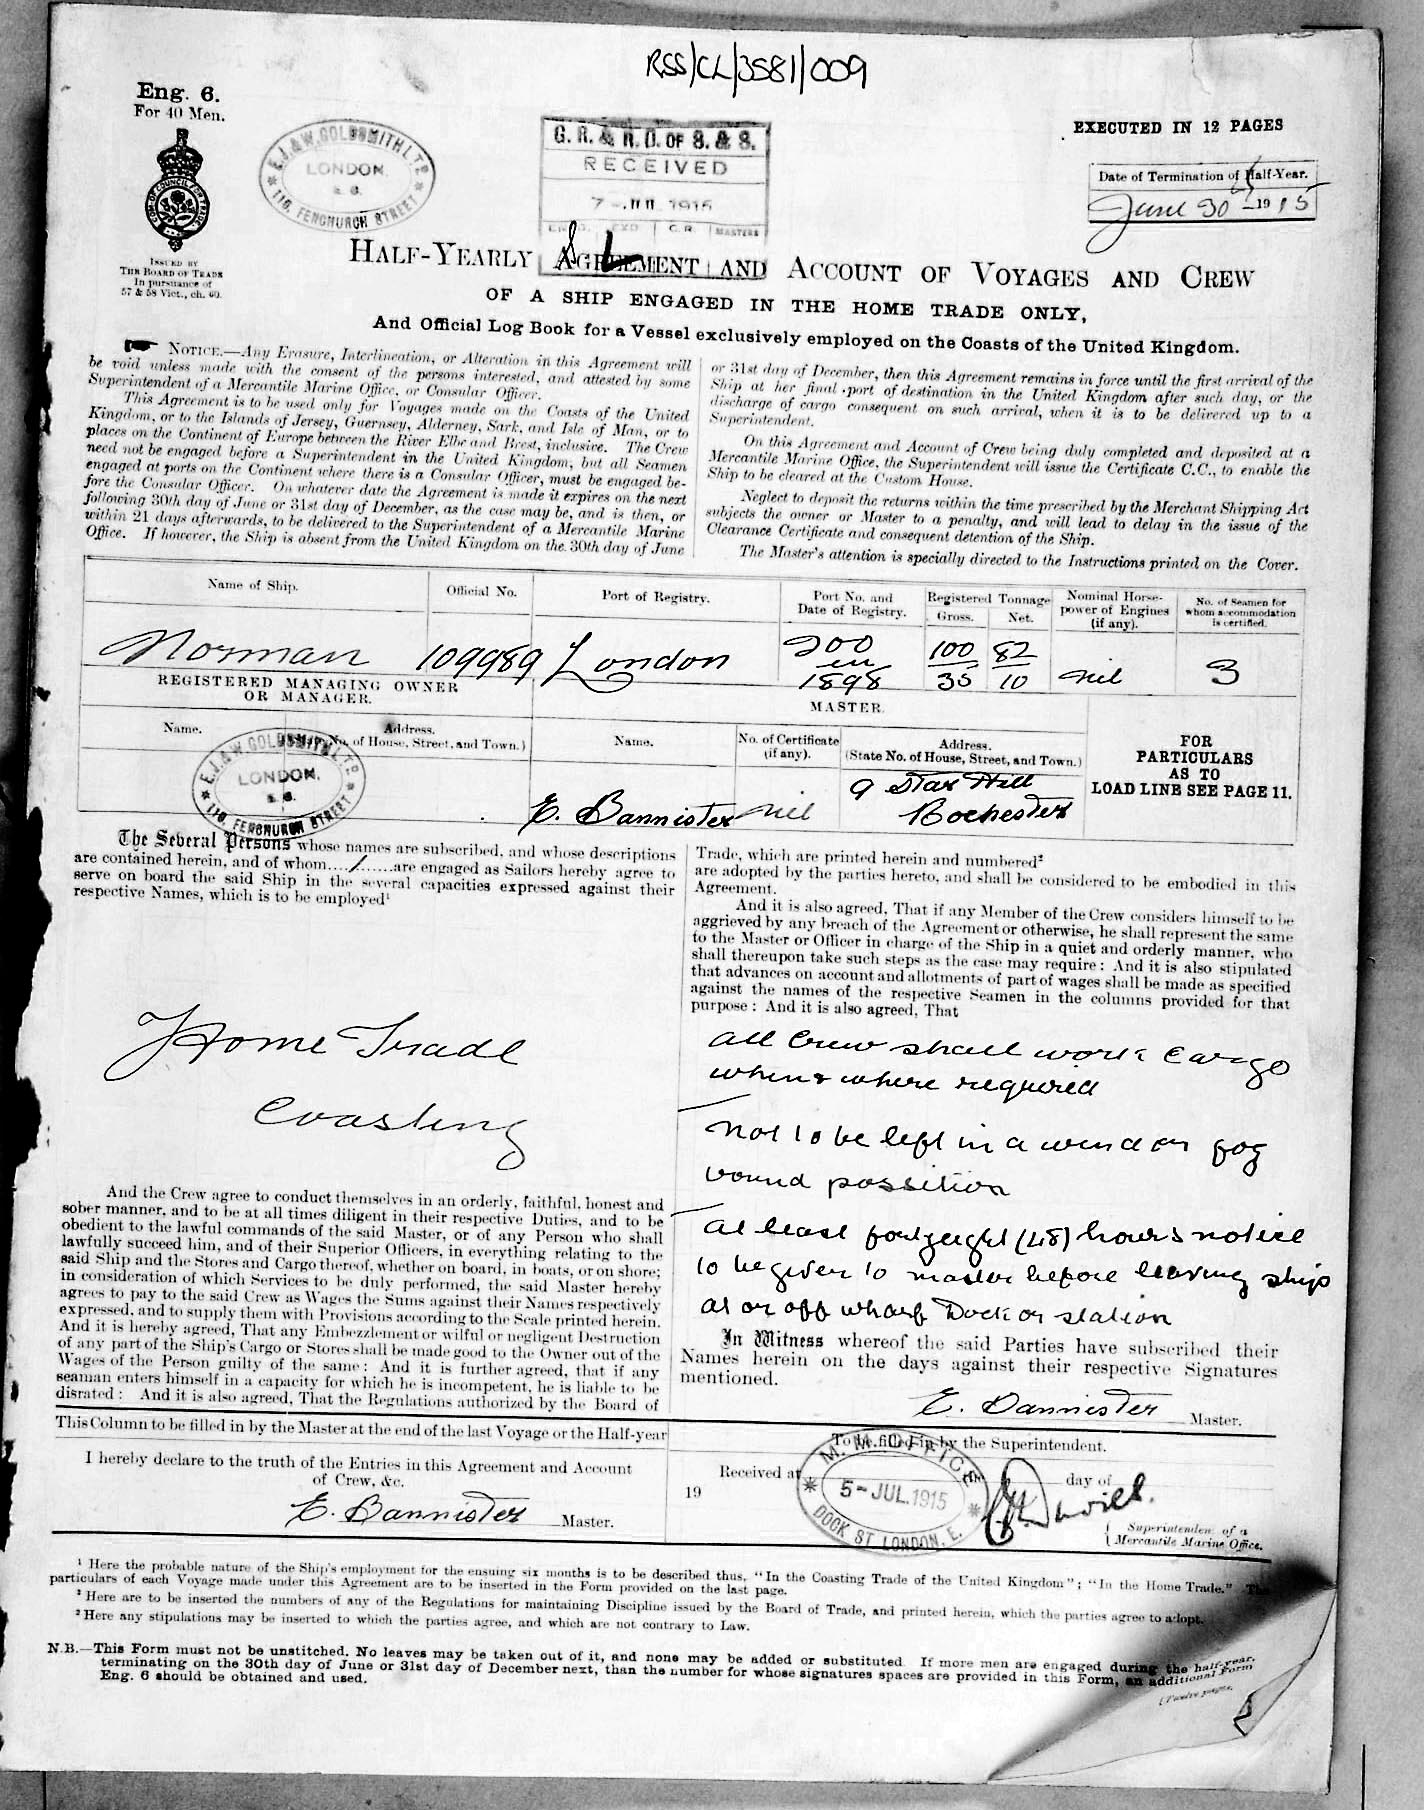 RSS/CL/3581/009
Eng. 6.
For 40 Men.
ISSUED BY
THE BOARD OF TRADE
In pursuance of
57 & 58 Vict., ch. 60.
E.J. & W. GOLDSMITH LTD
LONDON.
E. C.
116, FENCHURCH STREET
G. R. & R. O. OF S. & S.
RECEIVED
7 - JUL 1915
C.R. MASTERS
EXECUTED IN 12 PAGES
Date of Termination of Half-Year.
June 30th 1915
HALF-YEARLY AGREEMENT AND ACCOUNT OF VOYAGES AND CREW
OF A SHIP ENGAGED IN THE HOME TRADE ONLY,
And Official Log Book for a Vessel exclusively employed on the Coasts of the United Kingdom.
NOTICE.—Any Erasure, Interlineation, or Alteration in this Agreement will
be void unless made with the consent of the persons interested, and attested by some
Superintendent of a Mercantile Marine Office, or Consular Officer.
This Agreement is to be used only for Voyages made on the Coasts of the United
Kingdom, or to the Islands of Jersey, Guernsey, Alderney, Sark, and Isle of Man, or to
places on the Continent of Europe between the River Elbe and Brest, inclusive. The Crew
need not be engaged before a Superintendent in the United Kingdom, but all Seamen
engaged at ports on the Continent where there is a Consular Officer, must be engaged be-
fore the Consular Officer. On whatever date the Agreement is made it expires on the next
following 30th day of June or 31st day of December, as the case may be, and is then, or
within 21 days afterwards, to be delivered to the Superintendent of a Mercantile Marine
Office. If however, the Ship is absent from the United Kingdom on the 30th day of June
or 31st day of December, then this Agreement remains in force until the first arrival of the
Ship at her final port of destination in the United Kingdom after such day, or the
discharge of cargo consequent on such arrival, when it is to be delivered up to a
Superintendent.
On this Agreement and Account of Crew being duly completed and deposited at a
Mercantile Marine Office, the Superintendent will issue the Certificate C.C., to enable the
Ship to be cleared at the Custom House.
Neglect to deposit the returns within the time prescribed by the Merchant Shipping Act
subjects the owner or Master to a penalty, and will lead to delay in the issue of the
Clearance Certificate and consequent detention of the Ship.
The Master's attention is specially directed to the Instructions printed on the Cover.
Name of Ship. Official No. Port of Registry. Port No. and Date of Registry. Registered Tonnage Gross. Net. Nominal Horse-power of Engines (if any). No. of Seamen for whom accommodation is certified.
Norman 109989 London 200 in 1898 100 35 82 10 nil 3
REGISTERED MANAGING OWNER
OR MANAGER.
MASTER.
Name. Address. No. of House, Street, and Town.) Name. No. of Certificate (if any). Address. (State No. of House, Street, and Town.)
E.J. & W. GOLDSMITH LTD
LONDON.
E. C.
116, FENCHURCH STREET
E. Bannister nil 9 Star Hill
Rochester
FOR
PARTICULARS
AS TO
LOAD LINE SEE PAGE 11.
The Several Persons whose names are subscribed, and whose descriptions
are contained herein, and of whom....1......are engaged as Sailors hereby agree to
serve on board the said Ship in the several capacities expressed against their
respective Names, which is to be employed¹
Home Trade
Coasting
And the Crew agree to conduct themselves in an orderly, faithful, honest and
sober manner, and to be at all times diligent in their respective Duties, and to be
obedient to the lawful commands of the said Master, or of any Person who shall
lawfully succeed him, and of their Superior Officers, in everything relating to the
said Ship and the Stores and Cargo thereof, whether on board, in boats, or on shore;
in consideration of which Services to be duly performed, the said Master hereby
agrees to pay to the said Crew as Wages the Sums against their Names respectively
expressed, and to supply them with Provisions according to the Scale printed herein.
And it is hereby agreed, That any Embezzlement or wilful or negligent Destruction
of any part of the Ship's Cargo or Stores shall be made good to the Owner out of the
Wages of the Person guilty of the same: And it is further agreed, that if any
seaman enters himself in a capacity for which he is incompetent, he is liable to be
disrated: And it is also agreed, That the Regulations authorized by the Board of
Trade, which are printed herein and numbered²
are adopted by the parties hereto, and shall be considered to be embodied in this
Agreement.
And it is also agreed, That if any Member of the Crew considers himself to be
aggrieved by any breach of the Agreement or otherwise, he shall represent the same
to the Master or Officer in charge of the Ship in a quiet and orderly manner, who
shall thereupon take such steps as the case may require: And it is also stipulated
that advances on account and allotments of part of wages shall be made as specified
against the names of the respective Seamen in the columns provided for that
purpose: And it is also agreed, That
all Crew shall work Cargo
when & where required
not to be left in a wind or fog
bound possition
at least fortyeight (48) hours notice
to be given to master before leaving ship
at or off wharf Dock or station
In Witness whereof the said Parties have subscribed their
Names herein on the days against their respective Signatures
mentioned.
E. Bannister Master.
This Column to be filled in by the Master at the end of the last Voyage or the Half-year
I hereby declare to the truth of the Entries in this Agreement and Account
of Crew, &c.
E. Bannister Master.
To be filled in by the Superintendent.
Received at day of
19
M. M. OFFICE
5 - JUL. 1915
DOCK ST LONDON, E.
Superintendent of a
Mercantile Marine Office.
¹ Here the probable nature of the Ship's employment for the ensuing six months is to be described thus, "In the Coasting Trade of the United Kingdom"; "In the Home Trade." The
particulars of each Voyage made under this Agreement are to be inserted in the Form provided on the last page.
² Here are to be inserted the numbers of any of the Regulations for maintaining Discipline issued by the Board of Trade, and printed herein, which the parties agree to adopt.
³ Here any stipulations may be inserted to which the parties agree, and which are not contrary to Law.
N.B.—This Form must not be unstitched. No leaves may be taken out of it, and none may be added or substituted. If more men are engaged during the half-year,
terminating on the 30th day of June or 31st day of December next, than the number for whose signatures spaces are provided in this Form, an additional Form
Eng. 6 should be obtained and used.
(Twelve pages.